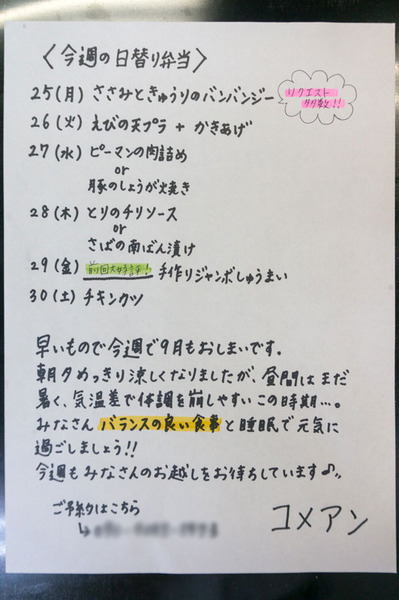 〈今週の日替り弁当〉
25(月) ささみときゅうりのバンバンジー
リクエスト
多数!!
26(火) えびの天プラ + かきあげ
27(水) ピーマンの肉詰め
or
豚のしょうが焼き
28(木) とりのチリソース
or
さばの南ばん漬け
29(金) 前回大好評! 手作りジャンボしゅうまい
30(土) チキンカツ
早いもので今週で9月もおしまいです.
朝夕めっきり涼しくなりましたが、昼間はまだ
暑く、気温差で体調を崩しやすいこの時期…。
みなさん バランスの良い食事と睡眠で元気に
過ごしましょう!!
今週もみなさんのお越しをお待ちしています♪。
ご予約はこちら
↳
コメアン